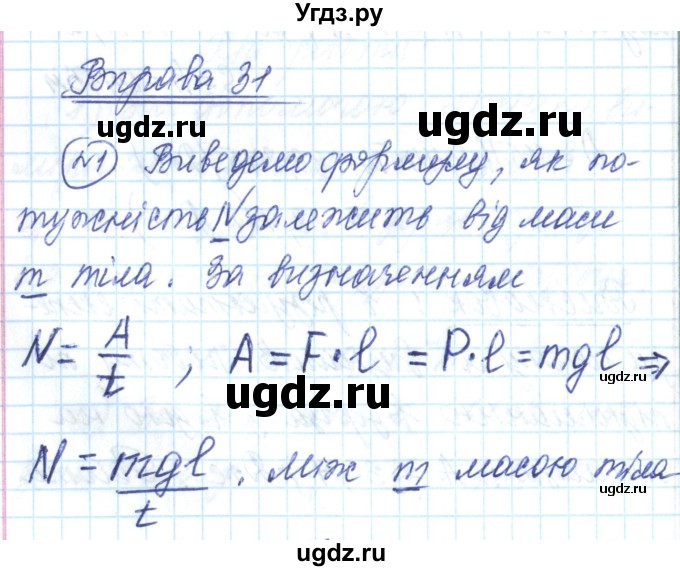 Угдз.ру
Вправа 31
ugdz.ru
№1 Виведемо формулу, як по-
ugdz.ru
тужність N залежить від маси
m тіла. За визначенням
N = A/t ; A = F·l = P·l = mgl ⇒
ugdz.ru
ugdz.ru
N = mgl/t . Між m масою тіла
ugdz.ru
ugdz.ru